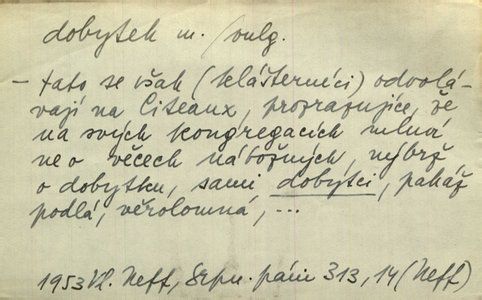 dobytek m. / vulg.
– tato se však (klášterníci) odvolá-
vají na Citeaux, prozrazujíce, že
na svých kongregacích mluví
ne o věcech nábožných, nýbrž
o dobytku, sami dobytci, pakáž
podlá, věrolomná, ...
1953 Vl. Neff, Srpn. páni 313, 14 (Neff)